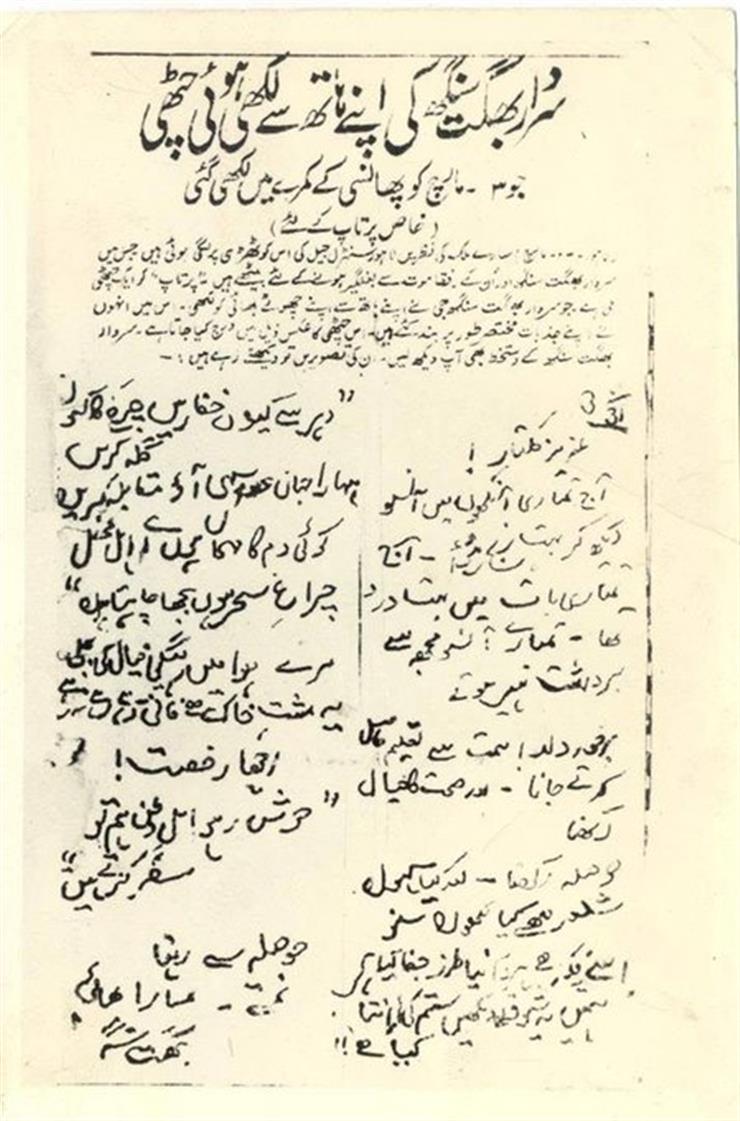 سردار بھگت سنگھ کی اپنے ہاتھ سے لکھی ہوئی چٹھی
جو ۳ ۔ مارچ کو پھانسی کے کمرے میں لکھی گئی
(خاص پرتاپ کے لئے)
سارے ملک کی نظریں لاہور سنٹرل جیل کی اس کوٹھڑی پر لگی ہوئی ہیں جس میں
سردار بھگت سنگھ اور ان کے رفقا موت سے بغلگیر ہونے کے لئے بیٹھے ہیں "پرتاپ" کو ایک چٹھی
ملی ہے۔ جو سردار بھگت سنگھ جی نے اپنے ہاتھ سے اپنے چھوٹے بھائی کو لکھی۔ اس میں انہوں
نے اپنے جذبات مختصر طور پر بند کئے ہیں۔ اس چٹھی کا عکس ذیل میں درج کیا جاتا ہے۔ سردار
بھگت سنگھ کے دستخط بھی آپ دیکھ لیں۔ ان کی تصویریں تو دیکھتے رہے ہیں :۔
عزیز کلتار !
آج تمہاری آنکھوں میں آنسو
دیکھ کر بہت رنج ہوا ۔ آج
تمہاری بات میں بہت درد
تھا ۔ تمہارے آنسو مجھ سے
برداشت نہیں ہوتے
برخوردار ! ہمت سے تعلیم حاصل
کرتے جانا ۔ اور صحت کا خیال
رکھنا
حوصلہ رکھنا ۔ اور کیا کہوں
شعر کیا کہوں سنو
اسے یہ فکر ہے ہردم نیا طرز جفا کیا ہے
ہمیں یہ شوق ہے دیکھیں ستم کی انتہا
کیا ہے !!
"دہر سے کیوں خفا رہیں چرخ کا کیوں
گلہ کریں
ہمارا جہاں عدو سہی آؤ مقابلہ کریں
کوئی دم کا مہماں ہوں اے اہل محفل
چراغ سحر ہوں بجھا چاہتا ہوں"
مرے ہوا میں رہیگی خیال کی بجلی
یہ مشت خاک ہے فانی رہے رہے نہ رہے
اچھا رخصت !
"خوش رہو اہل وطن ہم تو
سفر کرتے ہیں"
حوصلہ سے رہنا
نمستے ۔ تمہارا بھائی
بھگت سنگھ